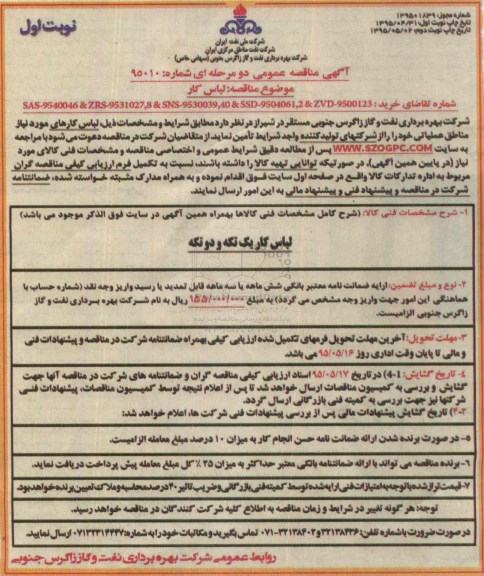 شماره مجوز: ۱۳۹۵۰۱۸۳۹
تاریخ چاپ نوبت اول: ۱۳۹۵/۰۴/۳۱
تاریخ چاپ نوبت دوم: ۱۳۹۵/۰۵/۰۲
نوبت اول
شرکت ملی نفت ایران
شرکت نفت مناطق مرکزی ایران
شرکت بهره برداری نفت و گاز زاگرس جنوبی (سهامی خاص)
آگهی مناقصه عمومی دو مرحله ای شماره: ۹۵۰۱۰
موضوع مناقصه: لباس کار
شماره تقاضای خرید: SAS-9540046 & ZRS-9531027,8 & SNS-9530039,40 & SSD-9504061,2 & ZVD-9500123
شرکت بهره برداری نفت و گاز زاگرس جنوبی مستقر در شیراز در نظر دارد مطابق شرایط و مشخصات ذیل، لباس کارهای مورد نیاز
مناطق عملیاتی خود را از شرکتهای تولیدکننده واجد شرایط تأمین نماید. از متقاضیان شرکت در مناقصه دعوت می شود با مراجعه
به سایت WWW.SZOGPC.COM پس از مطالعه دقیق شرایط عمومی و اختصاصی مناقصه و مشخصات فنی کالای مورد
نیاز (در پایین همین آگهی)، در صورتیکه توانایی تهیه کالا را داشته باشند، نسبت به تکمیل فرم ارزیابی کیفی مناقصه گران
مربوط به اداره تدارکات کالا واقع در صفحه اول سایت فوق اقدام نموده و به همراه مدارک مثبته خواسته شده، ضمانتنامه
شرکت در مناقصه و پیشنهاد فنی و پیشنهاد مالی به این امور ارسال نمایند.
۱- شرح مشخصات فنی کالا: (شرح کامل مشخصات فنی کالاها بهمراه همین آگهی در سایت فوق الذکر موجود می باشد)
لباس کار یک تکه و دو تکه
۲- نوع و مبلغ تضمین: ارایه ضمانت نامه معتبر بانکی شش ماهه یا سه ماهه قابل تمدید یا رسید واریز وجه نقد (شماره حساب با
هماهنگی این امور جهت واریز وجه مشخص می گردد) به مبلغ ۱۵۵/۰۰۰/۰۰۰ ریال به نام شرکت بهره برداری نفت و گاز
زاگرس جنوبی الزامیست.
۳- مهلت تحویل: آخرین مهلت تحویل فرمهای تکمیل شده ارزیابی کیفی بهمراه ضمانتنامه شرکت در مناقصه و پیشنهادات فنی
و مالی تا پایان وقت اداری روز ۹۵/۰۵/۱۶ می باشد.
۴- تاریخ گشایش: 4-1) در تاریخ ۹۵/۰۵/۱۷ اسناد ارزیابی کیفی مناقصه گران و ضمانتنامه های شرکت در مناقصه آنها جهت
گشایش و بررسی به کمیسیون مناقصات ارسال خواهد شد تا پس از اعلام نتیجه توسط کمیسیون مناقصات، پیشنهادات فنی
شرکتها نیز جهت بررسی به کمیته فنی بازرگانی ارسال گردد.
۴-۲) تاریخ گشایش پیشنهادات مالی پس از بررسی پیشنهادات فنی شرکت ها، اعلام خواهد شد:
۵- در صورت برنده شدن ارائه ضمانت نامه حسن انجام کار به میزان ۱۰ درصد مبلغ معامله الزامیست.
۶- برنده مناقصه می تواند با ارائه ضمانتنامه بانکی معتبر حداکثر به میزان ۲۵٪ کل مبلغ معامله پیش پرداخت دریافت نماید.
۷- قیمت تراز شده با توجه به امتیازات فنی ارایه شده توسط کمیته فنی بازرگانی و ضریب تاثیر ۴۰ درصد محاسبه و ملاک تعیین برنده خواهد بود.
توجه: هر گونه تغییر در شرایط و زمان مناقصه به اطلاع کلیه شرکت کنندگان در مناقصه خواهد رسید.
در صورت ضرورت با شماره تلفن: ۳۲۱۳۸۴۳۶ و ۳۲۱۳۸۴۰۲-۰۷۱ تماس بگیرید و مکاتبات خود را به شماره: ۰۷۱۳۲۳۱۴۴۴۷ ارسال نمایید.
روابط عمومی شرکت بهره برداری نفت و گاز زاگرس جنوبی